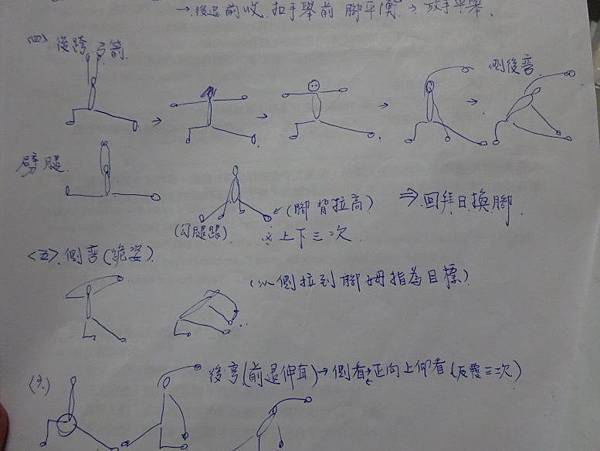 →後退前收. 扣手舉前 腳平衡 → 放手平舉.
<四> 後跨弓箭.
側後彎
劈腿
(勾腿跟)
(腳背拉高)
⇒ 回拜日換腳.
※上下三次
<五>. 側彎(跪姿).
(以側拉到腳姆指為目標)
<六>.
後彎(前退伸直)→側看→正向上仰看(反覆三次)